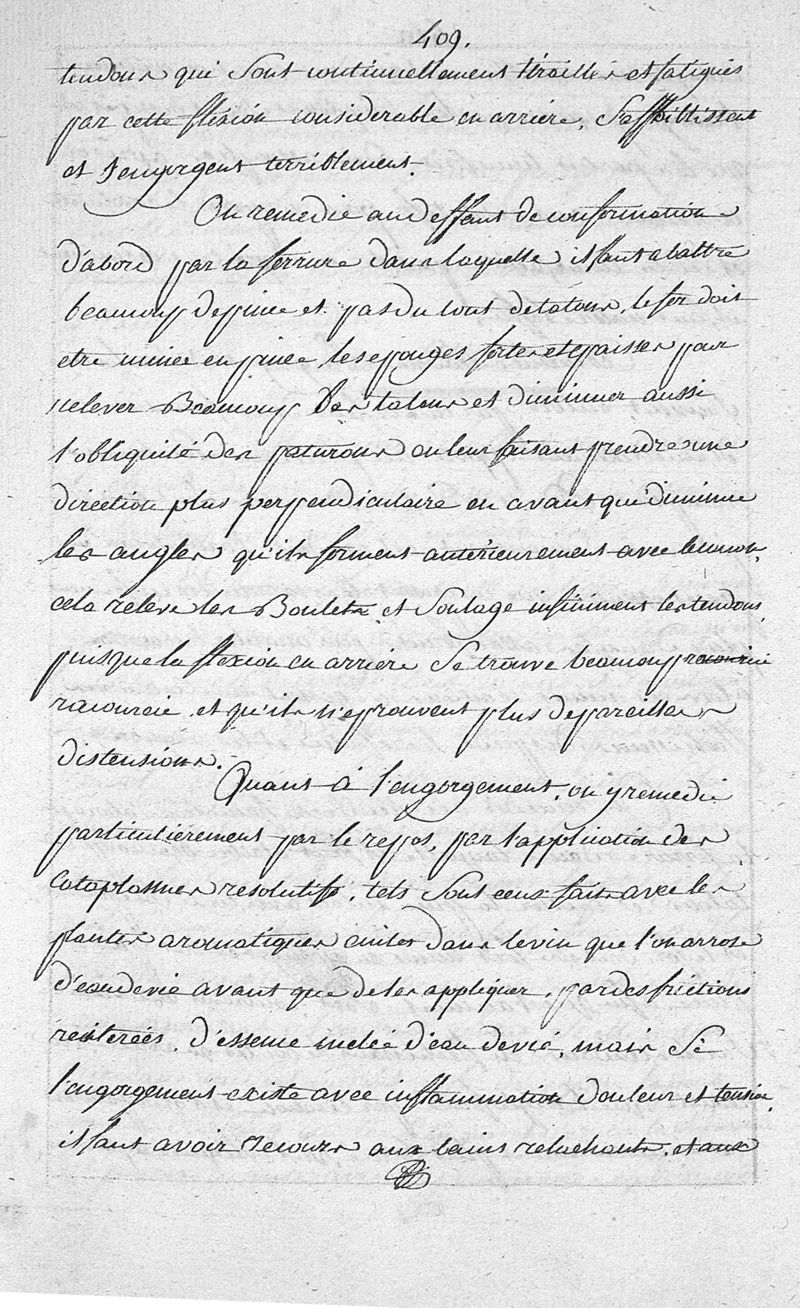 409.
tendons qui sont continuellement tiraillés et fatigués
par cette flexion considerable en arriere, s'affoiblissent
et s'engorgent terriblement.
On remedie au deffaut de conformation
d'abord par la ferrure dans laquelle il faut abattre
beaucoup de pince et pas du tout de talons, le fer doit
etre mince en pince, les eponges fortes et epaisses pour
relever Beaucoup les talons et diminuer aussi
l'obliquité des paturons en leur faisant prendre une
direction plus perpendiculaire en avant qui diminue
les angles qu'ils forment anterieurement avec le canon,
cela releve les Boulets et soulage infiniment les tendons,
puisque la flexion en arriere se trouve beaucoup
racourcie et qu'ils n'eprouvent plus de pareilles
distensions.
Quant à l'engorgement, on y remedie
particulièrement par le repos, par l'application des
Cataplasmes resolutifs, tels sont ceux faits avec les
plantes aromatiques cuites dans le vin que l'on arrose
d'eau de vie avant que de les appliquer, par des frictions
reiterées, d'essence melée d'eau de vie, mais si
l'engorgement existe avec inflammation douleur et tension,
il faut avoir recours aux bains relachants, et aux